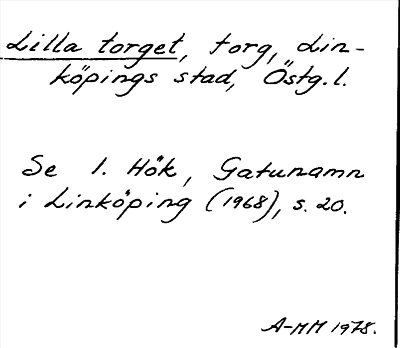 Lilla torget, torg, Lin-
köpings stad, Östg. l.
Se I. Hök, Gatunamn
i Linköping (1968), s. 20.
A-MM 1978.